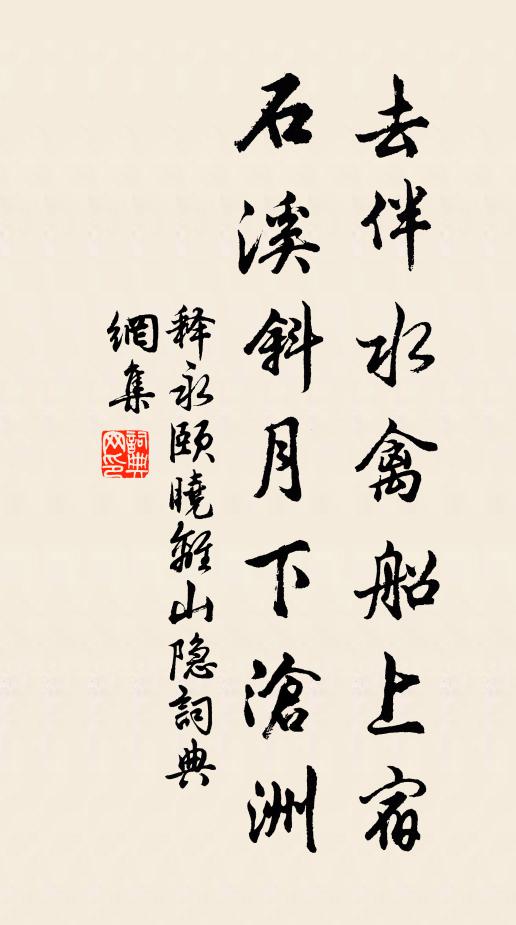 去伴水禽船上宿
石溪斜月下滄洲
释永頤曉離山隐詞典
網集
詞典網印